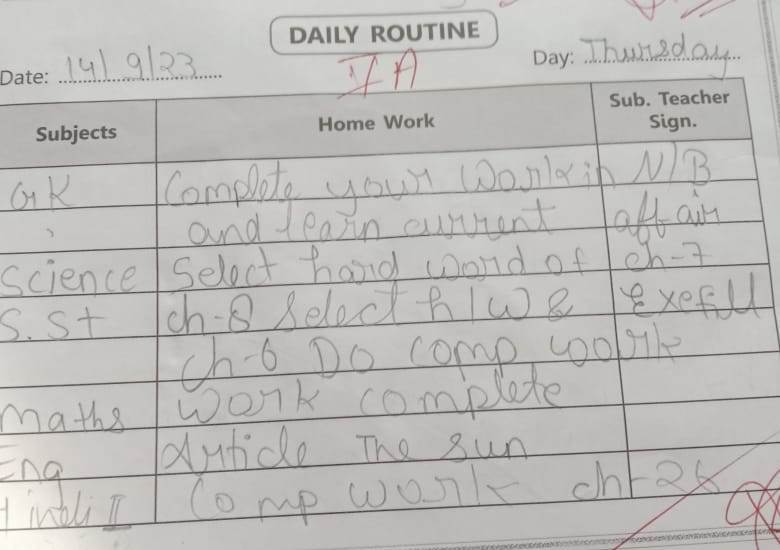 DAILY ROUTINE
Date: 14/9/23 IA Day: Thursday
Subjects Home Work Sub. Teacher Sign.
GK Complete your Work in N/B
and learn current affair
Science Select hard word of ch-7
S.St ch-8 Select h/w & Exefill
Ch-6 Do comp work
Maths Work complete
Eng Article The Sun
Hindi II Comp work ch-26